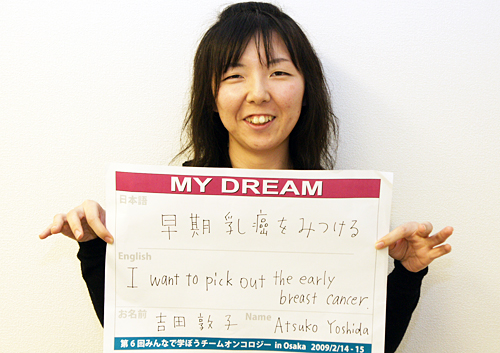 MY DREAM
日本語
早期乳癌をみつける
English
I want to pick out the early
breast cancer.
お名前 吉田 敦子 Name Atsuko Yoshida
第6回みんなで学ぼうチームオンコロジー in Osaka 2009/2/14-15